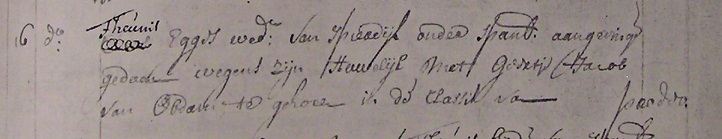 16 do. Theunis Egges wedr. van Spierdijk onder Spanb. aangeving
gedaan wegens zijn Huwelijk met Geertje Jacob
van Obdam te gehoren in de Classis van pro deo